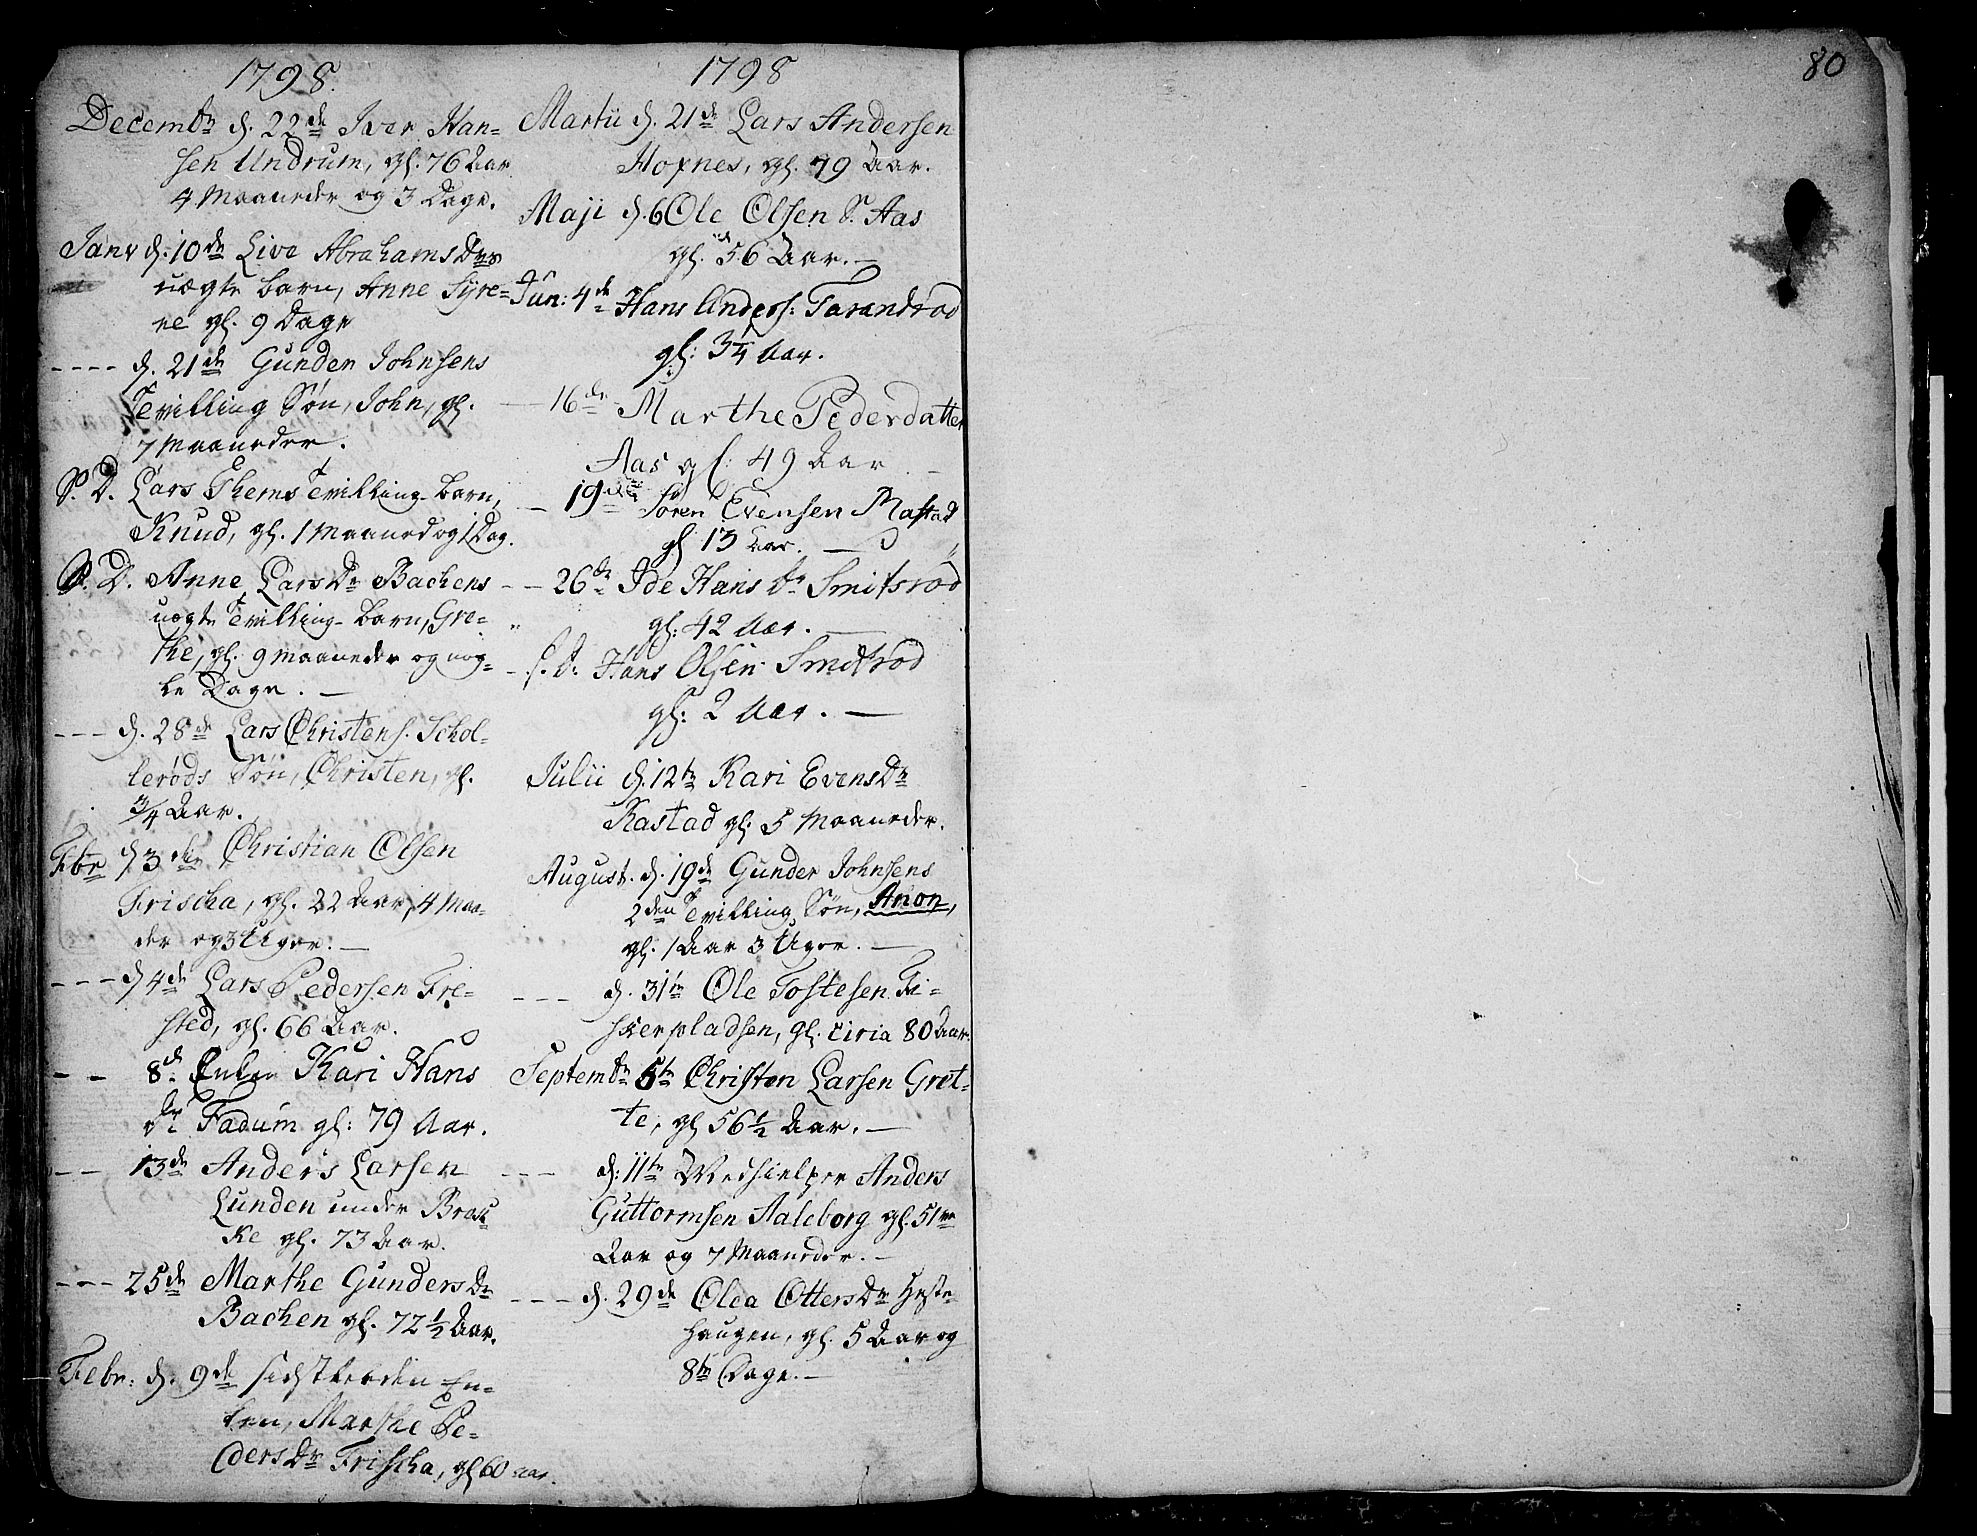 1798.
Decembr d. 22de Iver Han=
sen Undrum, gl. 76 Aar
4 Maaneder og 3 Dage.
Janr d. 10de Live AbrahamsDrs
uægte barn, Anne Syre=
ne gl. 9 Dage
---- d. 21de Gunder Johnsens
Tevilling Søn, John, gl.
7 Maaneder.
S. D. Lars Thems Tevilling-barn,
Knud, gl. 1 Maaned og 1 Dag.
S. D. Anne LarsDr Bachens
uægte Tevilling-barn, Gre=
the, gl. 9 Maaneder og nog=
le Dage. —
--- d. 28de Lars Christens. Schol=
lerøds Søn, Christen, gl.
3/4 Aar.
Febr d 3de Christian Olsen
Frischa, gl. 22 Aar, 4 Maa=
der og 3 Uger. —
--- d 4de Lars Pedersen Fre=
sted, gl. 66 Aar.
-- 8de Enken Kari Hans
dr Fadum gl: 79 Aar.
-- 13de Anders Larsen
Lunden under Brec
ke gl. 73 Aar.
--- 25de Marthe GundersDr
Bachen gl. 72 1/2 Aar.
Febr: d. 9de sidstleden En=
ken, Marthe Pe=
dersDr Frischa, gl 60 aar.
1798
Martii d. 21de Lars Andersen
Hoxnes, gl. 79 Aar.
Maji d. 6 Ole Olsen S. Aas
gl. 56 Aar. —
Jun: 4de Hans Anders: Tarandrød
gl: 3 1/4 Aar.
— 16de Marthe Pederdatter
Aas gl: 49 Aar. —
— 19de Søren Evensen Rastad
gl 13 Aar. —
-- 26de Ide Hans Dr Smitsrød
gl: 42 Aar. —
- s. D: Hans Olsen Smitsrød
gl: 2 Aar. —
Julii d. 12te Kari EvensDr
Rastad gl. 5 Maaneder.
August. d. 19de Gunder Johnsens
2den Tevilling Søn, Anon,
gl. 1 Aar 3 Uger. —
--- d. 31te Ole Tostesen Fi=
skerpladsen, gl. circa 80 Aar.
Septembr 5te Christen Larsen Gret=
te, gl 56 1/2 Aar. —
--- d: 11te Medhielper Anders
Guttormsen Aaleborg gl. 51
Aar og 7 Maaneder. —
--- d. 29de Olea OttersDr Heste=
haugen, gl. 5 Aar og
8te Dage. —
80